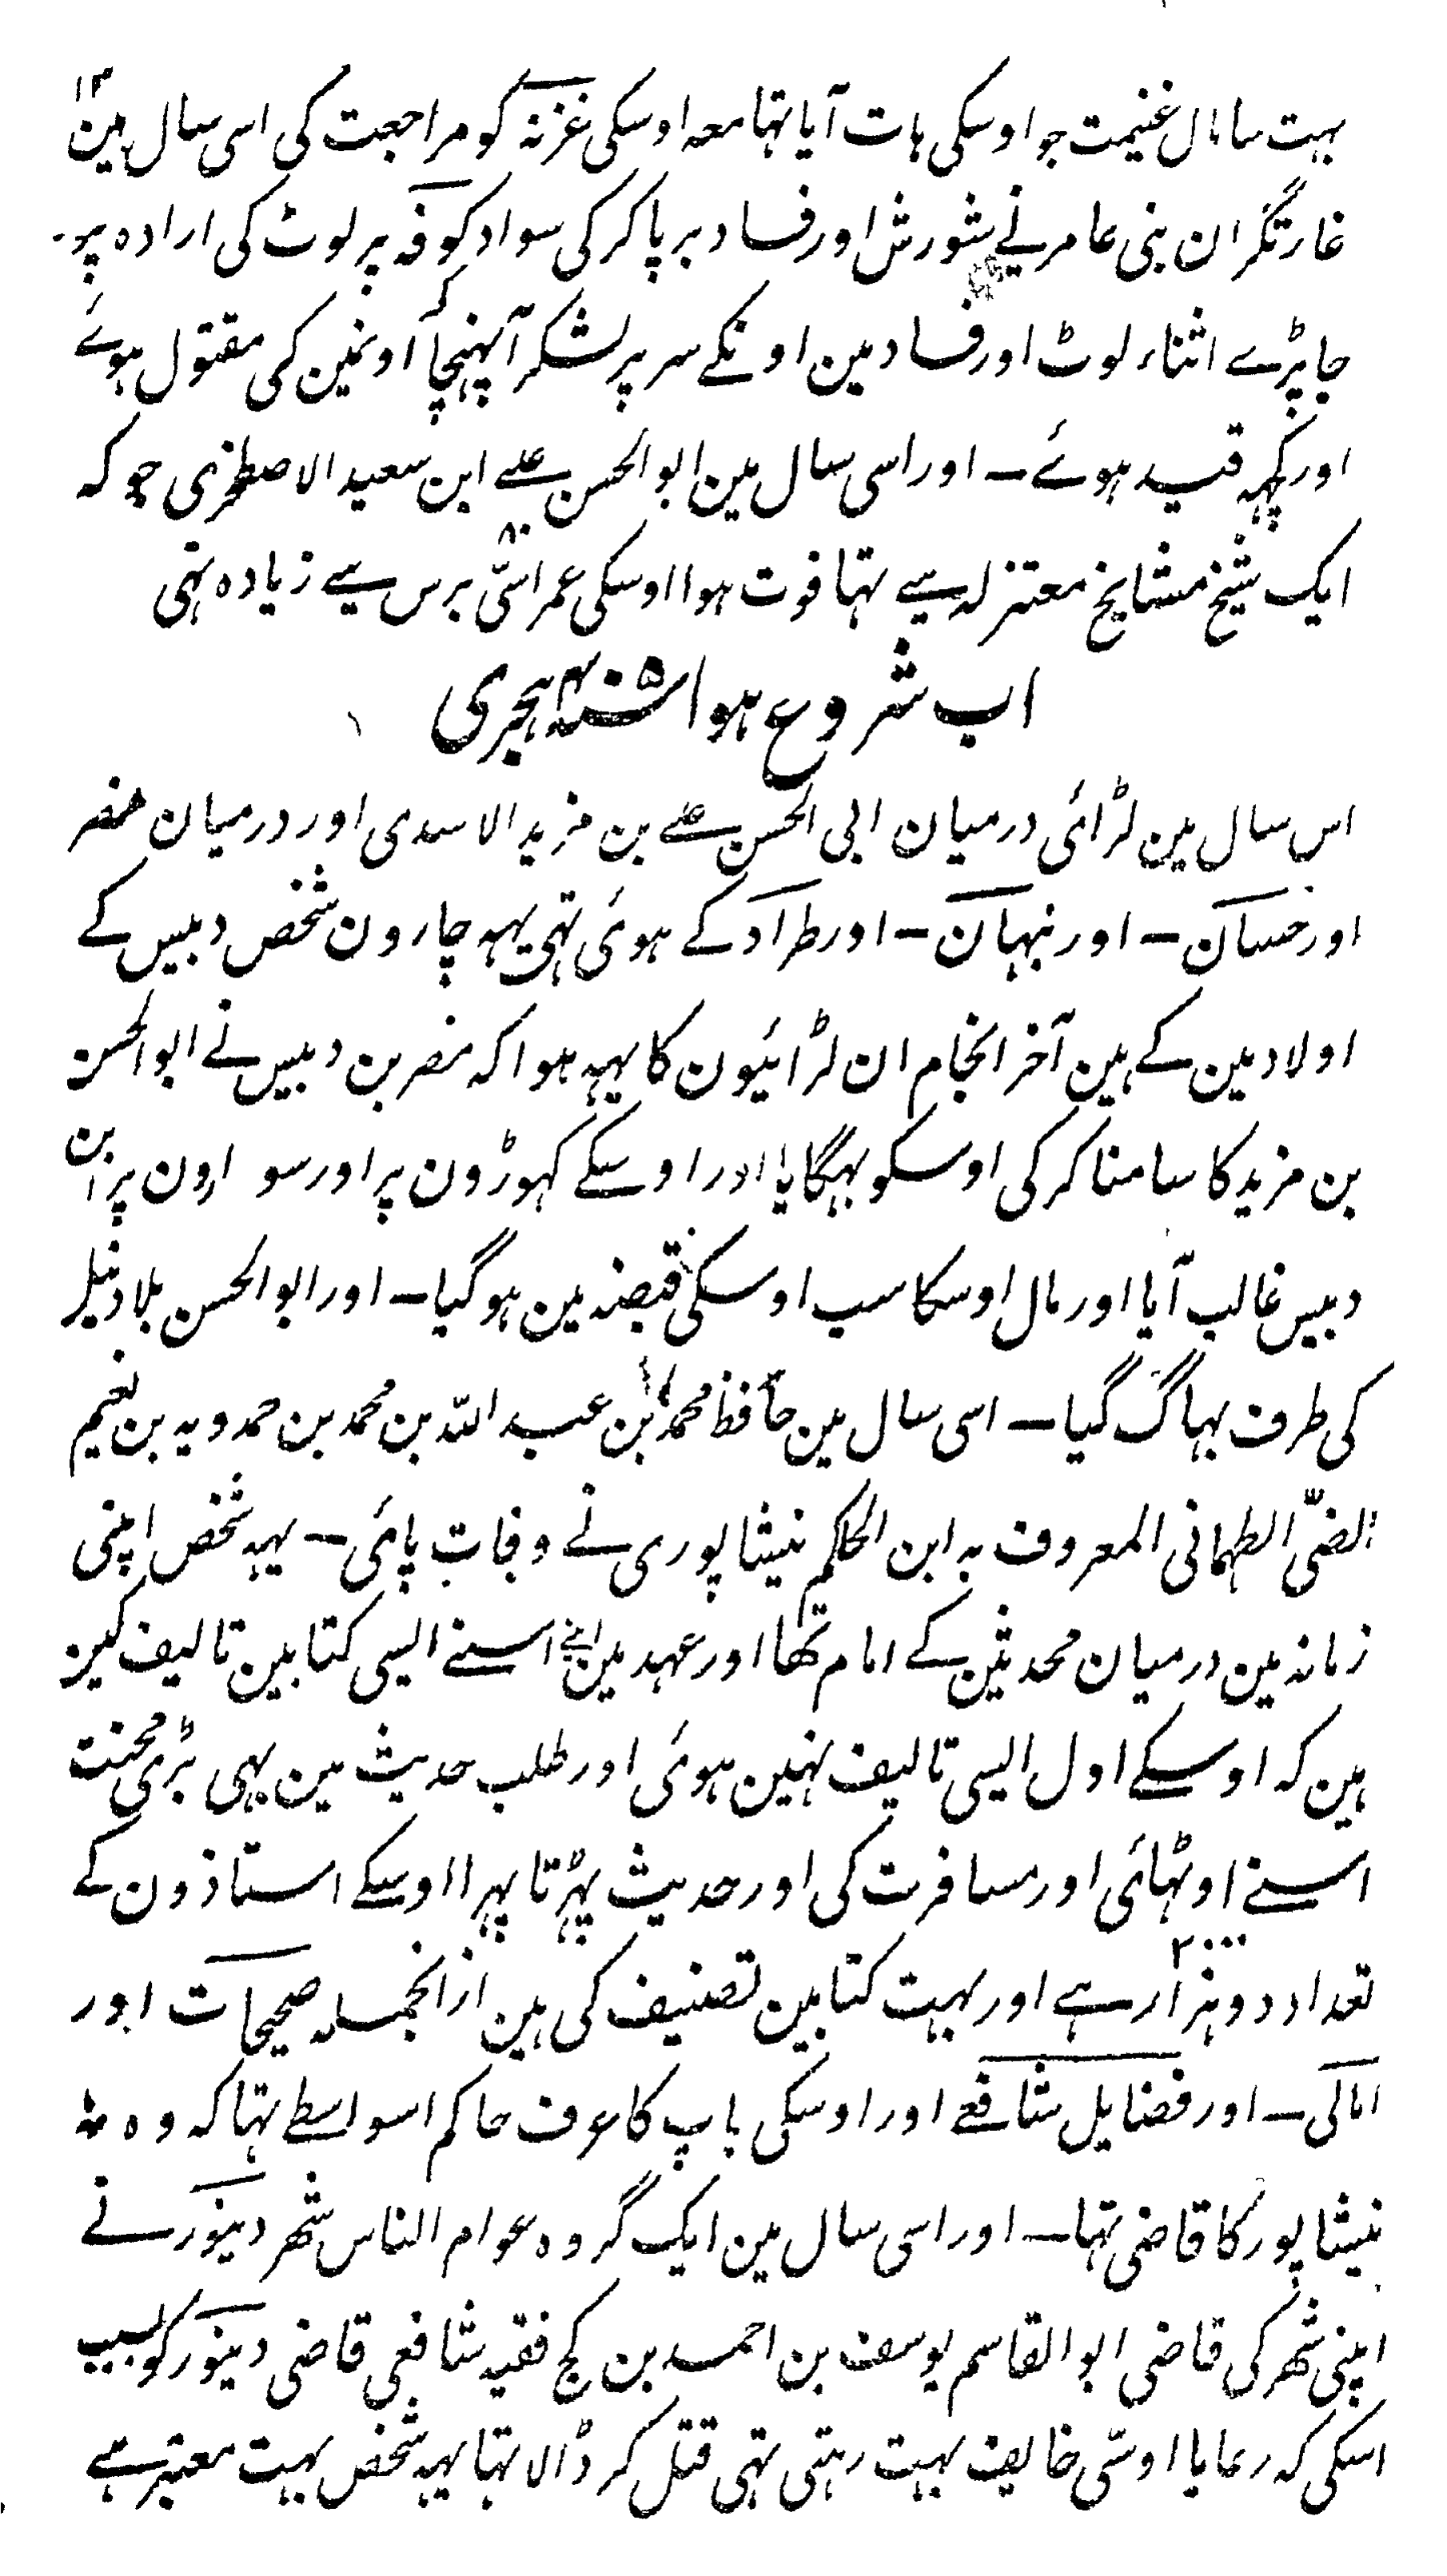 بہت سا مال غنیمت جو اوسکی ہات آیا تہا معہ اوسکی غزنہ کو مراجعت کی اسی سال مین ۱۲
غارتگران بنی عامر نے شورش اور فساد برپا کر کی سواد کوفہ پر لوٹ کی ارادہ پر
جا پڑے اثناء لوٹ اور فساد مین اونکے سر پر لشکر آپہنچا اونمین کی مقتول ہوئے
اور کچہہ قید ہوئے ــ اور اسی سال مین ابو الحسن علے ابن سعید الاصطخری جو کہ
ایک شیخ مشایخ معتزلہ سے تہا فوت ہوا اوسکی عمر اسّی ۸۰ برس سے زیادہ تہی
اب شروع ہوا سنہ ۴۰۵ ہجری
اس سال مین لڑائی درمیان ابی الحسن علے بن مزید الاسدی اور درمیان مضر
اور حسان ــ اور نبہان ــ اور طراد کے ہوئی تہی یہہ چارون شخص دبیس کے
اولاد مین کے ہین آخر انجام ان لڑائیون کا یہہ ہوا کہ مضر بن دبیس نے ابو الحسن
بن مزید کا سامنا کر کی اوسکو بہگایا اور اوسکے کہوڑون پر اور سوارون پر ابن
دبیس غالب آیا اور مال اوسکا سب اوسکی قبضہ مین ہو گیا ــ اور ابو الحسن بلاد نیل
کی طرف بہاگ گیا ــ اسی سال مین حافظ محمد بن عبد اللہ بن محمد بن حمدویہ بن نعیم
الضبّی الطہمانی المعروف بہ ابن الحاکم نیشاپوری نے وفات پائی ــ یہہ شخص اپنی
زمانہ مین درمیان محدثین کے امام تھا اور عہد مین اپنے اسنے ایسی کتابین تالیف کین
ہین کہ اوسکے اول ایسی تالیف نہین ہوئی اور طلب حدیث مین بہی بڑی محنت
اسنے اوٹہائی اور مسافرت کی اور حدیث پڑہتا پہرا اوسکے استاذون کے
تعداد دو ہزار ۲۰۰۰ ہے اور بہت کتابین تصنیف کی ہین ازانجملہ صحیحات اور
امالی ــ اور فضایل شافعے اور اوسکی باپ کا عرف حاکم اسواسطے تہا کہ وہ
نیشاپور کا قاضی تہا ــ اور اسی سال مین ایک گروہ عوام الناس شھر دینور نے
اپنی شھر کی قاضی ابو القاسم یوسف بن احمد بن کج فقیہ شافعی قاضی دینور کو بسبب
اسکی کہ رعایا اوسّی خایف بہت رہتی تہی قتل کر ڈالا تہا یہہ شخص بہت معتبر ہے